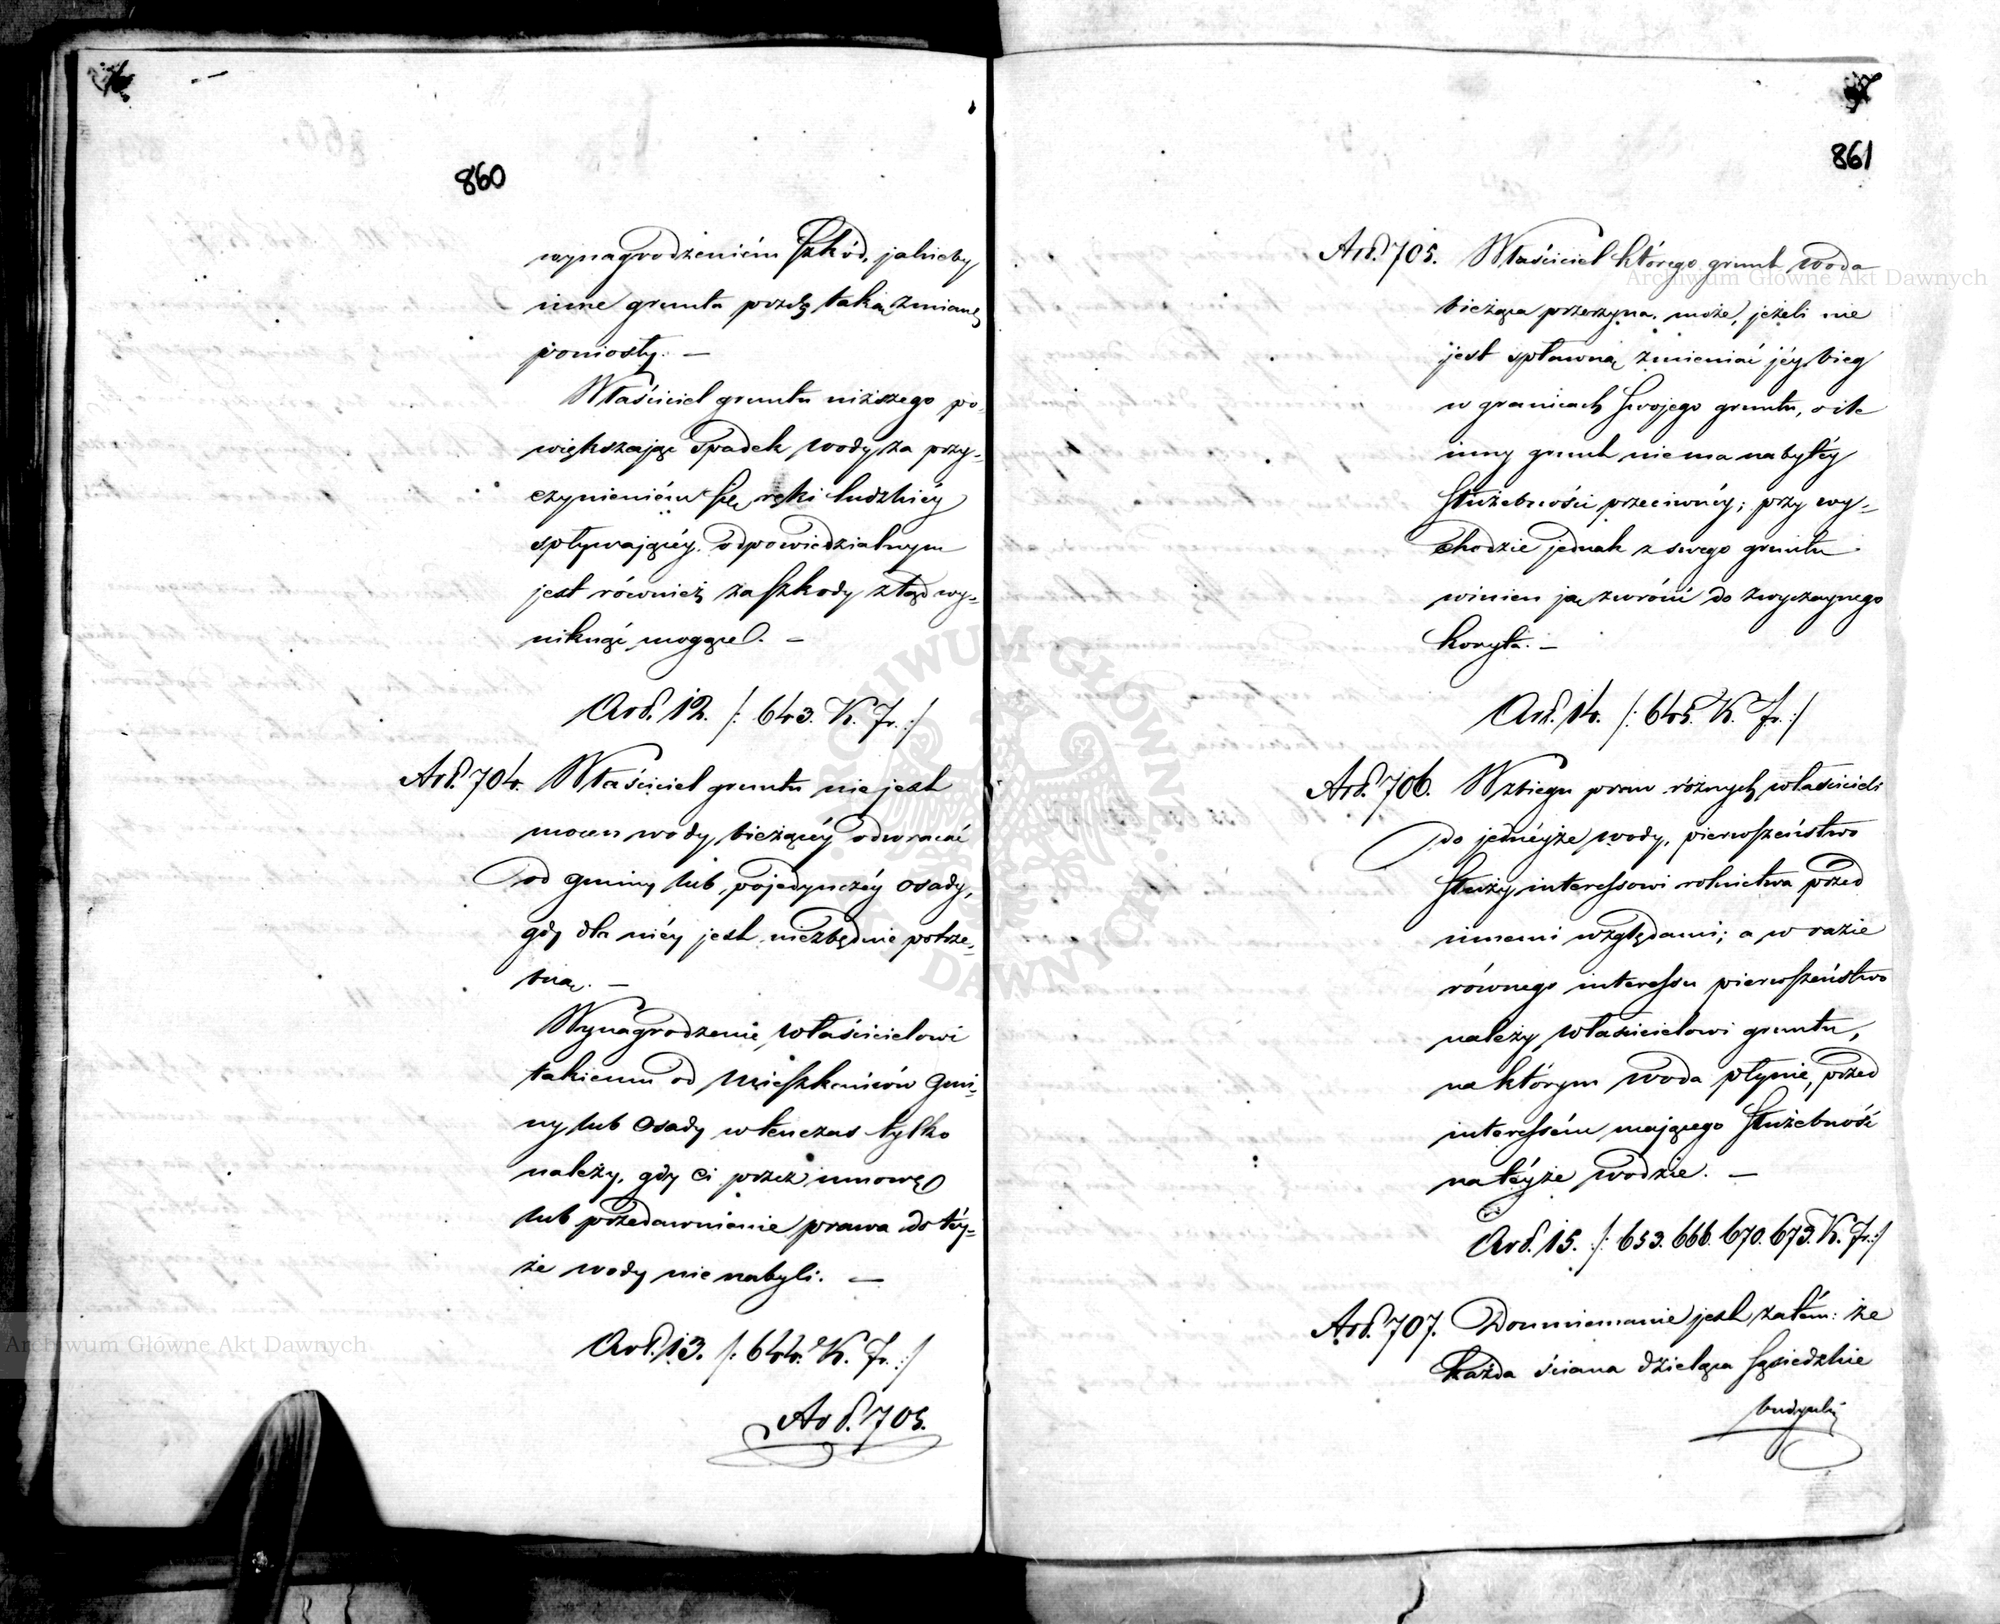 860
wynagrodzeniém szkód, jakieby
inne grunta przez taką zmianę
poniosły. —
Właściciel gruntu niższego po-
większając spadek wody za przy-
czynieniém się ręki ludzkiéy
spływającéy, odpowiedzialnym
jest również za szkody ztąd wy-
niknąć mogące. —
Art. 12. /: 643. K. Fr. :/
Art. 704. Właściciel gruntu nie jest
mocen wody bieżącéy odwracać
od gminy lub pojedynczéy osady,
gdy dla niéy jest niezbędnie potrze-
bną. —
Wynagrodzenie właścicielowi
takiemu od mieszkańców gmi-
ny lub osady wtenczas tylko
należy, gdy ci przez umowę
lub przedawnienie prawa do téy-
że wody nie nabyli. —
Art. 13. /: 644. K. Fr. :/
Art. 705.
861
Art. 705. Właściciel którego grunt woda
bieżąca przerzyna, może, jeżeli nie
jest spławną zmieniać jéy bieg
w granicach swojego gruntu, o ile
inny grunt nie ma nabytéy
służebności przeciwnéy; przy wy-
chodzie jednak z swego gruntu
winien ją zwrócić do zwyczaynego
koryta. —
Art. 14. /: 645. K. Fr. :/
Art. 706. W zbiegu praw różnych właścicieli
do jednéyże wody, pierwszeństwo
służy interessowi rolnictwa przed
innemi względami; a w razie
równego interessu pierwszeństwo
należy właścicielowi gruntu,
na którym woda płynie, przed
interessém mającego służebność
na téyże wodzie. —
Art. 15. /: 653. 666. 670. 673. K. Fr. :/
Art. 707. Domniemanie jest zatém: że
każda ściana dzieląca sąsiedzkie
budynki
Archiwum Główne Akt Dawnych
Archiwum Główne Akt Dawnych
ARCHIWUM GŁÓWNE AKT DAWNYCH